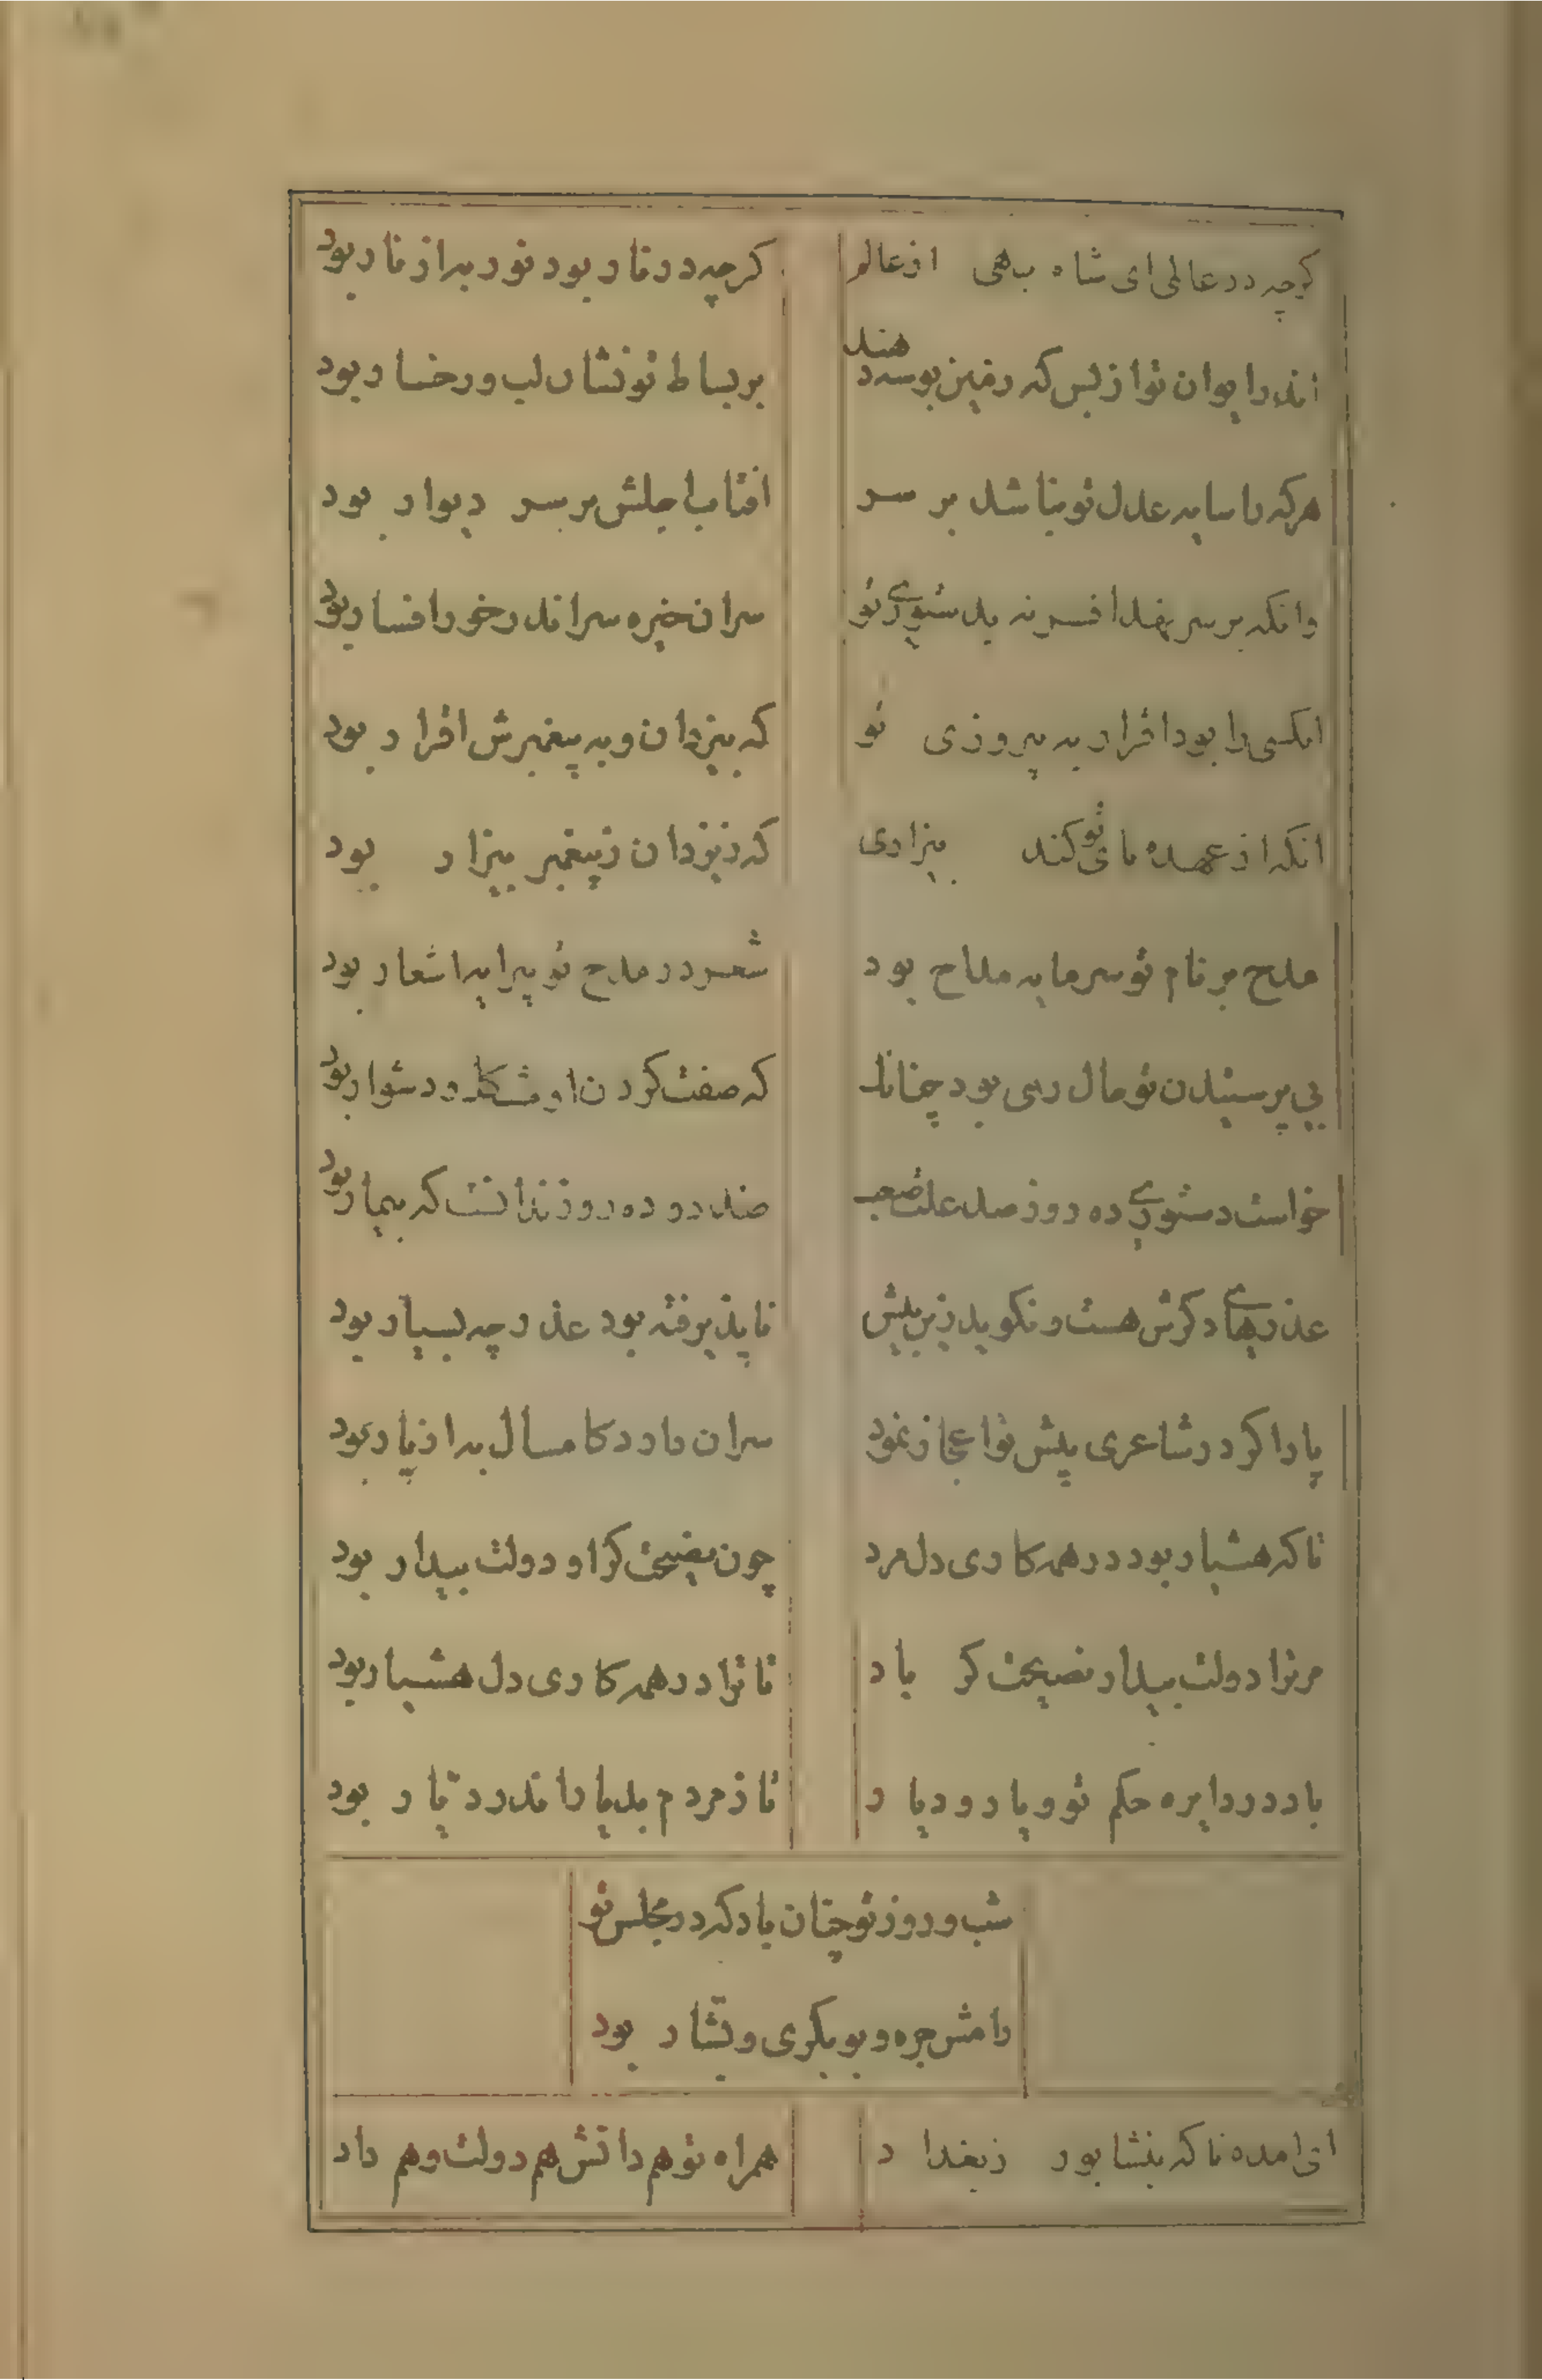 کرچه در عالمی ای شاه بهی از عالم
کرچه در نار بود نور به از نار بود
اندر ایوان تو از بس که زمین بوسه دهند
بر بساط تو نشان لب و رخسار بود
هرکه را سایه عدل تو نباشد بر سر
افتاب اجلش بر سر دیوار بود
وانکه بر سر بنهد افسر نه بدستوری تو
سر ان خیره سر اندر خور افسار بود
انکسی را بود اقرار به پیروزی تو
که بیزدان و به پیغمبرش اقرار بود
انکه از عهده مای تو کند بیزاری
که ز یزدان ز پیغمبر بیزار بود
مدح بر نام تو سرمایه مداح بود
شعر در مدح تو پیرایه اشعار بود
بی پرستیدن تو حال رهی بود چنانک
که صفت کردن او مشکل و دشوار بود
خواست دستوری ده روز صد علت صعب
صد و ده روز ندانست که بیمار بود
عذرهای دکرش هست و نکوید زین بیش
ناپذیرفته بود عذر چه بسیار بود
پار اکر در شاعری پیش تو اعجاز نمود
سر ان دارد کامسال به از پار بود
تا که هشیار بود در همه کاری دل مرد
چون نصیحت کر او دولت بیدار بود
مر ترا دولت بیدار نصیحت کر باد
تا ترا در همه کاری دل هشیار بود
باد در دایره حکم تو و یار و دیار
تا ز مردم بدیار اندر دیار بود
شب و روز تو چنان باد که در مجلس تو
رامش جره و بوبکری و بشار بود
ای امده تا که بنشابور ز بغداد
همراه تو هم دانش هم دولت و هم داد